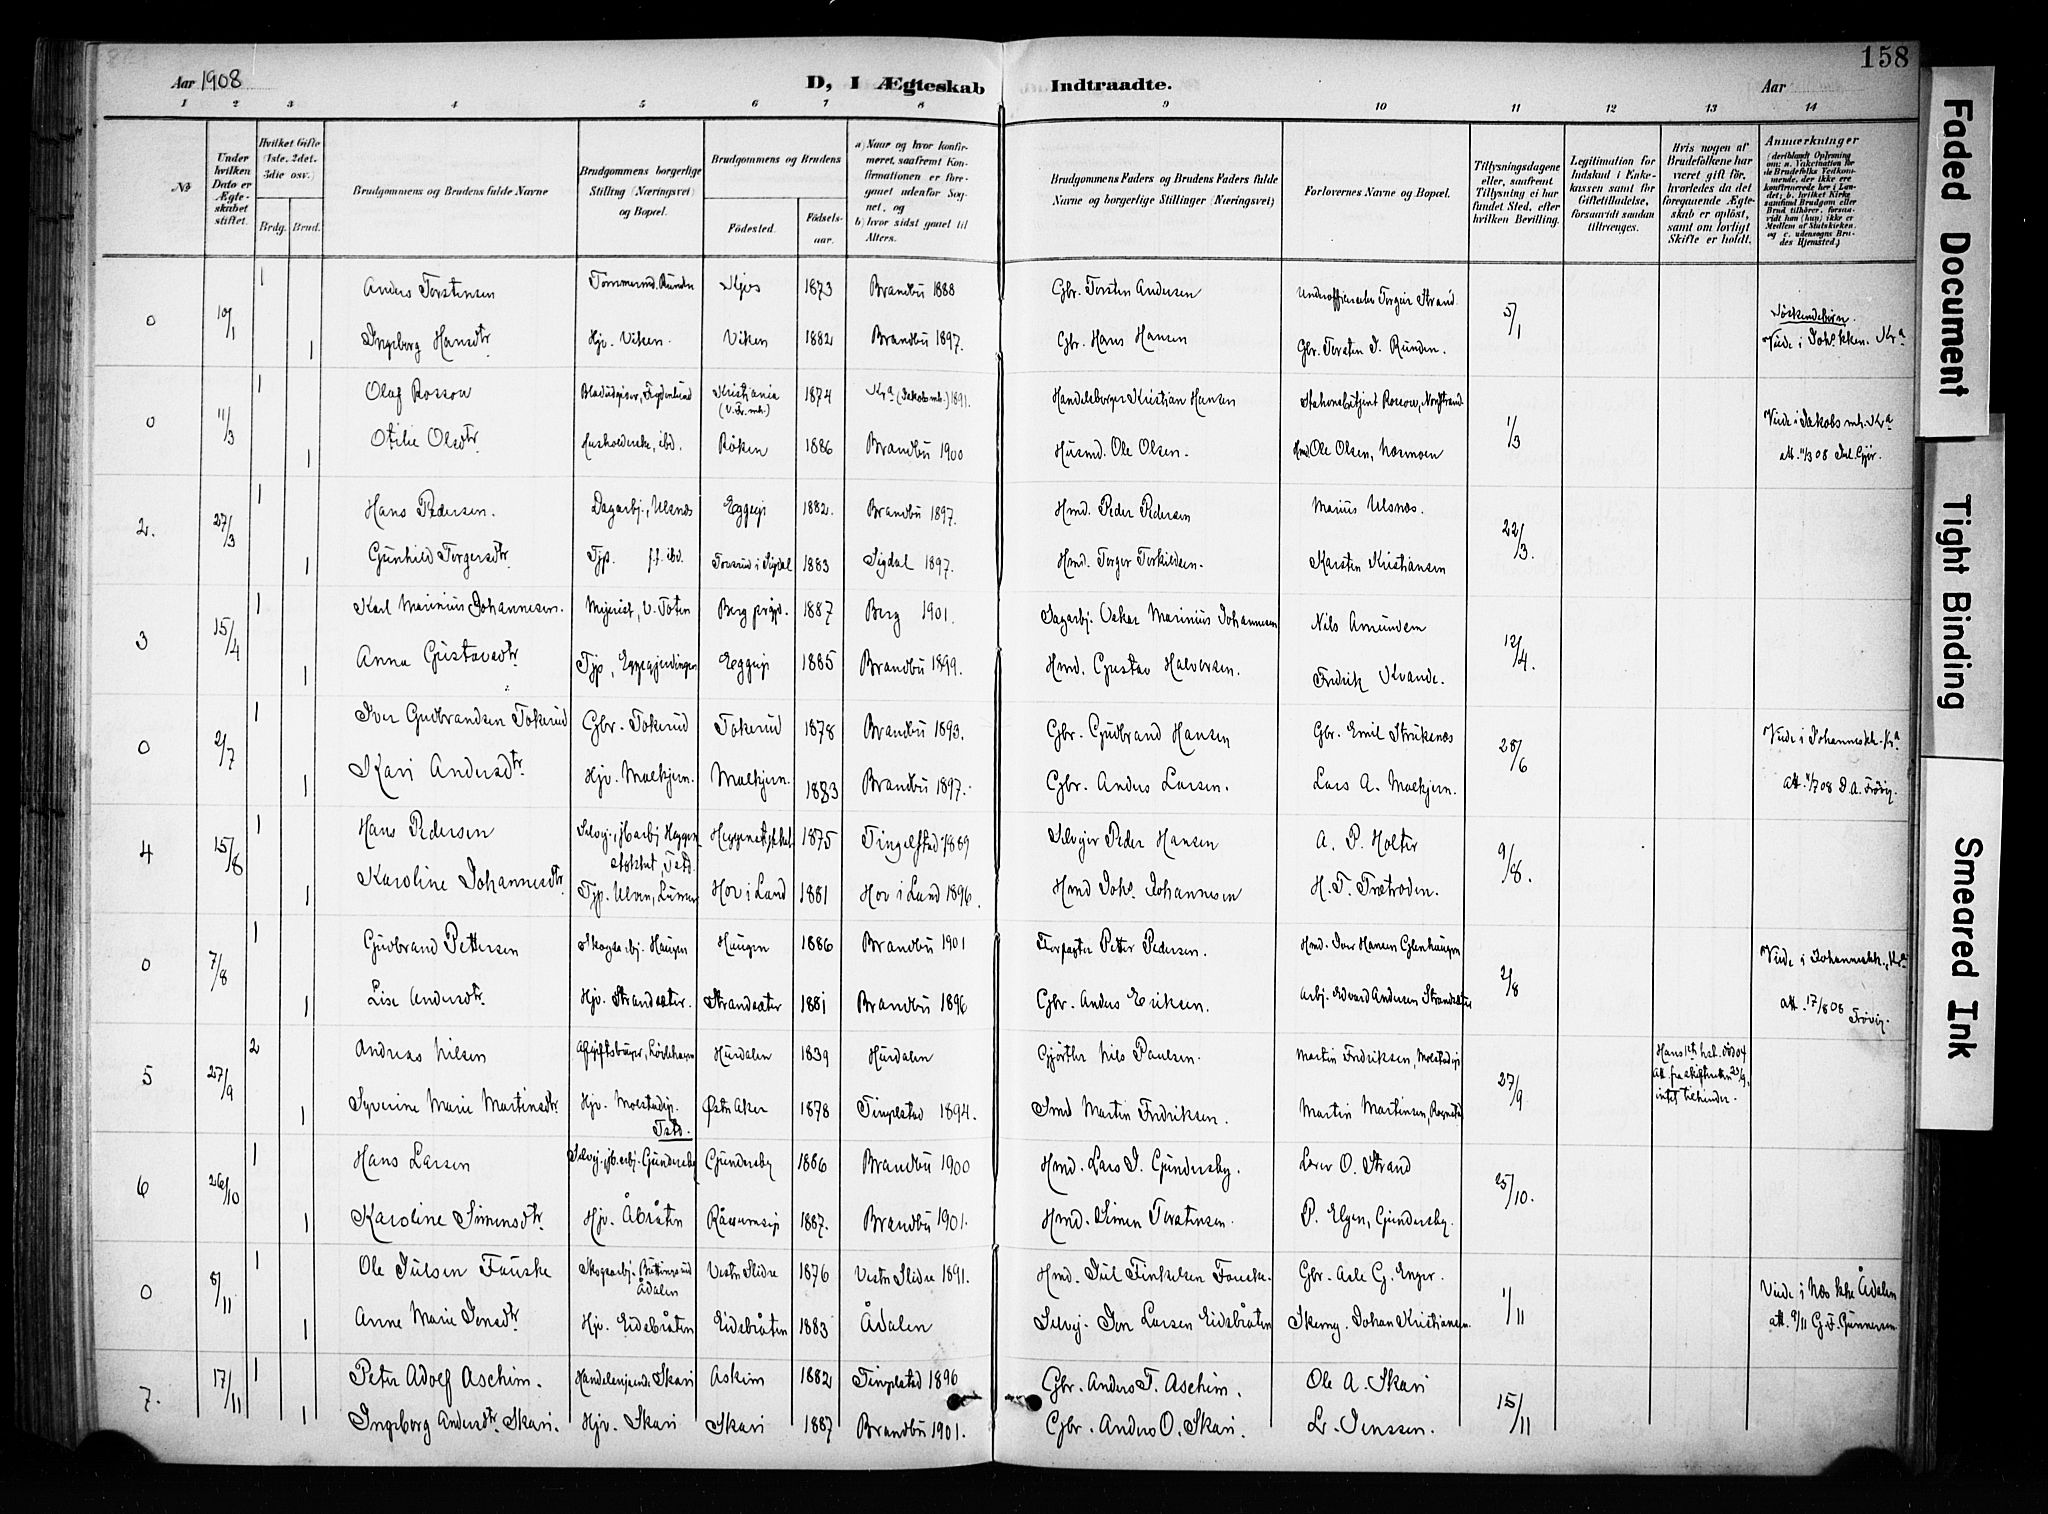 158
Aar 1908
D, I Ægteskab Indtraadte.
Aar
1 2 3 4 5 6 7 8 9 10 11 12 13 14
No
Under hvilken Dato er Ægteskabet stiftet.
Hvilket Gifte (1ste, 2det, 3die osv.)
Brdg. Brud.
Brudgommens og Brudens fulde Navne
Brudgommens borgerlige Stilling (Næringsvei) og Bopæl.
Brudgommens og Brudens
Fødested. Fødselsaar.
a) Naar og hvor konfirmeret, saafremt Konfirmationen er foregaaet udenfor Sognet, og
b) hvor sidst gaaet til Alters.
Brudgommens Faders og Brudens Faders fulde Navne og borgerlige Stillinger (Næringsvei)
Forlovernes Navne og Bopæl.
Tillysningsdagene eller, saafremt Tillysning ei har fundet Sted, efter hvilken Bevilling.
Legitimation for Indskud i Enkekassen samt for Giftetilladelse, forsaavidt saadan tiltrænges.
Hvis nogen af Brudefolkene har været gift før, hvorledes da det foregaaende Ægteskab er opløst, samt om lovligt Skifte er holdt.
Anmærkninger
0 10/1 1 Anders Torstensen Kjos 1873 Brandbu 1888 Gbr. Torsten Andersen Underofficerselev Torgeir Strand 5/1 Søskendebørn.
1 Ingeborg Hansdtr Hjv. Viken Viken 1882 Brandbu 1897. Gbr. Hans Hansen Gbr. Torsten J. Runden. Viede i Johs. kken. Kra
0 11/3 1 Olaf Rossow Kristiania 1874 Kra (Jakobs mh.) 1891. Handelsborger Kristian Hansen Rossow, Nordstrand 1/3 Viede i Jakobs mh. Kra
1 Otilie Olsdtr Husholderske, ibd. Røken 1886 Brandbu 1900 Husmd. Ole Olsen. Hmd Ole Olsen, Næsmoen att. 11/3 08 Jul. Gjør.
2. 27/3 1 Hans Pedersen. Dagarbj., Ulsnæs Eggeeje 1882. Brandbu 1897. Hmd. Peder Pedersen Marius Ulsnæs. 22/3.
1 Gunhild Torgersdtr Tjp. f.f. ibd. i Sigdal 1883 Sigdal 1897. Hmd. Torger Torkildsen. Karsten Kristiansen
3 15/4 1 Karl Marinius Johannesen. Mejerist, V. Toten Berg prgjd. 1887 Berg 1901. Sagarbj. Oskar Marinius Johannesen Nils Amundsen 12/4.
1 Anna Gustavsdtr Tjp, Eggegjerdingen Eggeeje 1885 Brandbu 1899. Hmd. Gustav Halvorsen. Fredrik Kvande.
0 2/7 1 Iver Gudbrandsen Tokerud Gbr. Tokerud Tokerud 1878 Brandbu 1893. Gbr. Gudbrand Hansen Gbr. Emil Strukenæs 28/6 Viede i Johanneskk. Kra
1 Kari Andersdtr Hjv. Molkjern. Molkjern. 1883 Brandbu 1897. Gbr. Anders Larsen. Lars A. Molkjern. att. 4/7 08 D. A. Frøvig.
4 15/8 1 Hans Pedersen 1875 Tingelstad 1889 Selvejer Peder Hansen A. P. Holter 9/8.
1 Karoline Johannesdtr Tjp. Ulven, Lunner Hov i Land 1881 Hov i Land 1896. Hmd Johs. Johannesen H. T. Trætroden.
0 7/8 1 Gudbrand Pettersen Skogsarbj. Haugen Haugen 1886 Brandbu 1901 Forpagter Petter Pedersen. Hmd. Iver Hansen Glenhaugen 2/8 Viede i Johanneskk., Kra
1 Lise Andersdtr. Hjv. Strandsæter. Strandsæter 1881 Brandbu 1896 Gbr. Anders Eriksen. Arbj. Edvard Andersen Strandsæter att. 17/8 08 Frøvig.
5 27/9 2 Andreas Nilsen Hurdalen 1839 Hurdalen Nils Paulsen. Martin Fredriksen, 27/9 Hans 1ste
att fra skifteretten intet tilhinder.
1 Syverine Marie Martinsdtr Hjv. Tstd. Østre Aker 1878 Tingelstad 1894. Smd Martin Fredriksen. Martin Martinsen,
6 26/10 1 Hans Larsen Gundersby Gundersby 1886 Brandbu 1900 Hmd. Lars J. Gundersby. Lærer O. Strand 25/10.
1 Karoline Simensdtr. Hjv. Åbråten 1887. Brandbu 1901. Hmd. Simen Torstensen. P. Elgen, Gundersby.
0 8/11 1 Ole Julsen Fauske Skogsarbj. Buttingsrud Ådalen Vestre Slidre 1876 Vestre Slidre 1891. Hmd. Jul Finkelsen Fauske. Gbr. Asle G. Enger. 1/11 Viede i Næs kke Ådalen
1 Anne Marie Jonsdtr Hjv. Eidsbråten Eidsbråten 1883 Ådalen Selvej. Jon Larsen Eidsbråten Johan Kristiansen. att. 9/11 G. F. Gunnersen
7. 17/11 1 Peter Adolf Aschim. Skari Askim 1882 Tingelstad 1896 Gbr. Anders T. Aschim. Ole A. Skari 15/11
1 Ingeborg Andersdtr. Skari. Hjv. Skari Skari 1887 Brandbu 1901. Gbr. Anders O. Skari. Lr. Jenssen.
Faded Document
Tight Binding
Smeared Ink